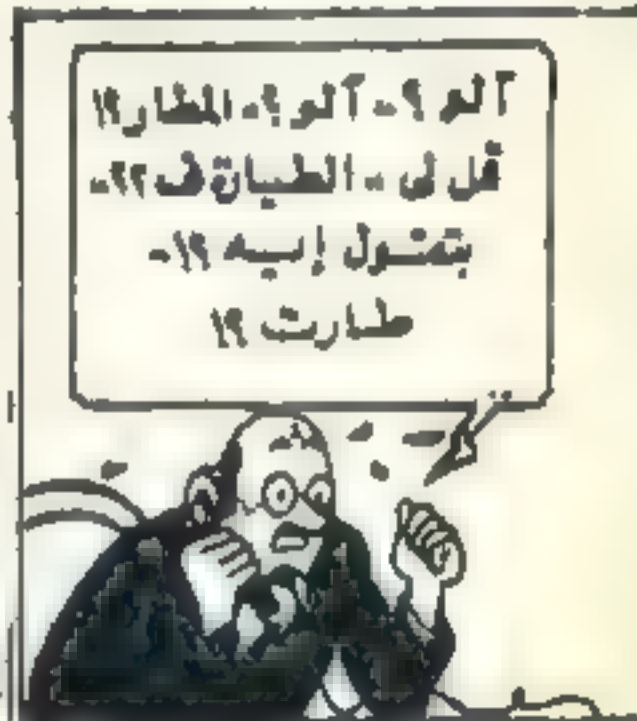 آلو ؟- آلو ؟- المطار؟!
قل لى - الطيارة ف ٢٢-
بتقول إيه ؟!-
طارت ؟!